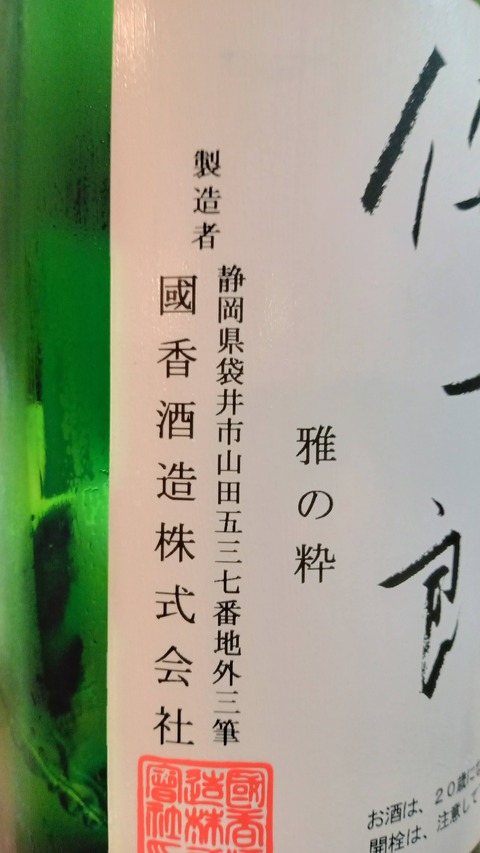 雅の粋
製造者
静岡県袋井市山田五三七番地外三筆
國香酒造株式会社
お酒は、20歳に
開栓は、注意して